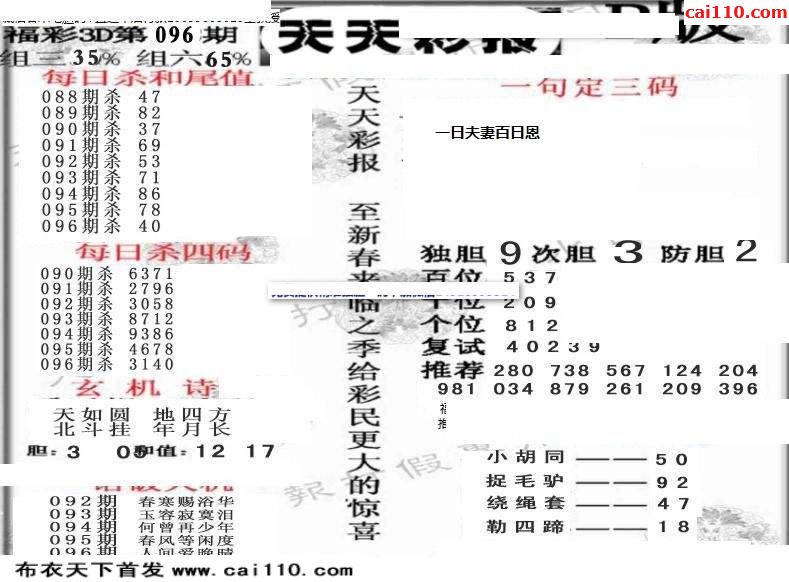 cai110.com
福彩3D第096期
组三35% 组六65%
天天彩报
每日杀和尾值
088期杀 47
089期杀 82
090期杀 37
091期杀 69
092期杀 53
093期杀 71
094期杀 86
095期杀 78
096期杀 40
每日杀四码
090期杀 6371
091期杀 2796
092期杀 3058
093期杀 8712
094期杀 9386
095期杀 4678
096期杀 3140
玄机诗
天如圆 地四方
北斗挂 年月长
胆:3 05和值:12 17
092期 春寒赐浴华
093期 玉容寂寞泪
094期 何曾再少年
095期 春风等闲度
096期 人间爱晚晴
天天彩报 至新春来临之季给彩民更大的惊喜
一句定三码
一日夫妻百日恩
独胆9次胆3防胆2
百位 537
十位 209
个位 812
复试 40239
推荐 280 738 567 124 204
981 034 879 261 209 396
小胡同———50
捉毛驴———92
绕绳套———47
勒四蹄———18
布衣天下首发 www.cai110.com